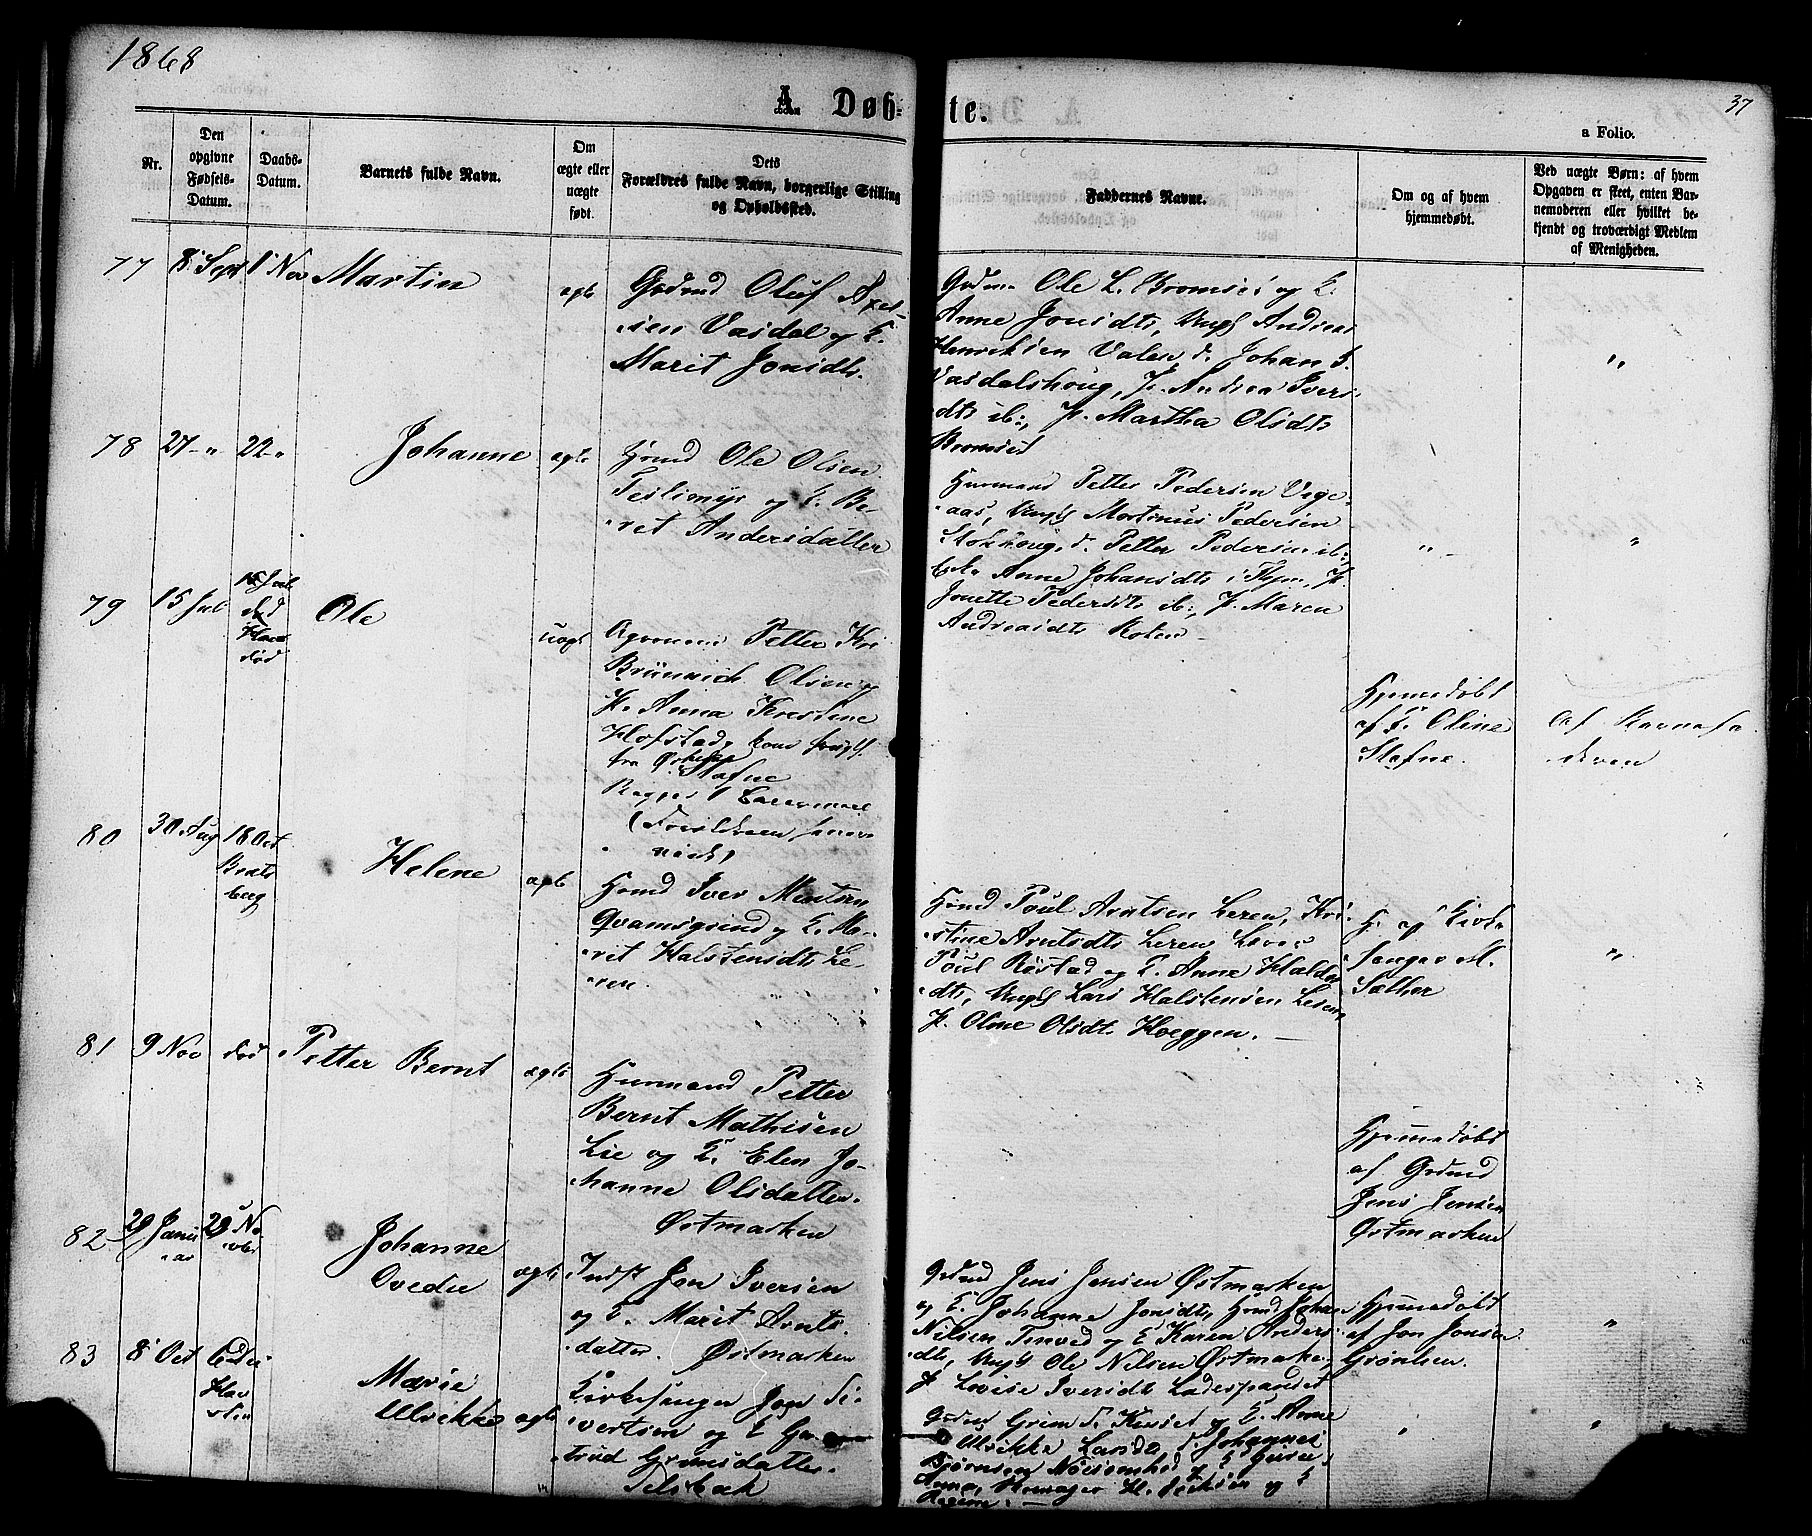 1868
37
A. Døbte.
a Folio.
Nr.
Den
opgivne
Fødsels-
Datum.
Daabs-
Datum.
Barnets fulde Navn.
Om
ægte eller
uægte
født.
Dets
Forældres fulde Navn, borgerlige Stilling
og Opholdssted.
Faddernes Navne.
Om og af hvem
hjemmedøbt.
Ved uægte Børn: af hvem
Opgaven er skeet, enten Bar-
nemoderen eller hvilket be-
kjendt og troværdigt Medlem
af Menigheden.
77 8 Sept 1 Nov Martin ægte
Grdmd Oluf Axel-
sen Vasdal og K.
Marit Jonsdt.
Grdm. Ole L. Bromset og K.
Anne Jonsdt, Ungk Andreas
Henriksen Valen, d. Johan J.
Vasdalshoug, P. Andrea Ivers-
dt ib:, P. Martha Olsdt
Bromset
"
78 27 - " 22 - " Johanne ægte
Hsmd Ole Olsen
Teslimyr og K. Be-
ret Andersdatter
Husmand Petter Pedersen Vege-
aas, Ungk Mortinus Pedersen
Stokhoug, d. Petter Pedersen ib:,
Anne Johansdt i Thjem, P.
Jonette Pedersdt ib:, P. Maren
Andreasdt Roten -
" -
"
79 15 Juli Ole uægte
død
Petter Kr.
Brünnich Olsen og
P. Anna Kirstine
Hofstad,
fra
Stafne
Hjemedøbt
af K. Oline
Stafne.
af Barnefa
deren
80 30 Aug 18 Oct
Brats
berg
Helene ægte
Hsmd Iver Mortsen
Qvamsgrind og K. Ma-
rit Halstensdt Le-
ren.
Hsmd Poul Arntsen Leren, Kri-
stine Arntsdt Leren
Poul Røstad og K. Anne Haldor
dt, Ungk Lars Halstensen Leren,
P. Oline Olsdt. Hoeggen. -
H. af Kirke
sanger M.
Sæther
"
81 9 Nov død Petter Bernt ægte
Husmand Petter
Bernt Mathisen
Lie og K. Elen Jo-
hanne Olsdatter.
Østmarken
Hjemmedøbt
af Grdmd
Jens Jensen
Østmarken
82 29 Janu
ar
29 No
vbr
Johanne
Ovedie
ægte
Indst Jon Iversen
og K. Marit Arnts-
datter. Østmarken
Grdmd Jens Jensen Østmarken
og K. Johanne Jonsdt, Hsmd Johan
Nilsen Tenved og K Karen Anders
dt, Ungk Ole Nilsen Østmarken,
P. Lovise Iversdt Ladespandet
Hjemmedøbt
af Jon Jonsen
Grønlien.
"
83 8 Oct 6 Dec
Hav
sten
Marie
Ulrikke
ægte
Kirkesanger Joen Si-
vertsen og K Ger-
trud Grimsdatter.
Telsbak
Grdmd Grim S. Kuset og K. Anne
Ulrikke Larsd., d. Johannes
Bjørnsen Nøisomhed
"
"